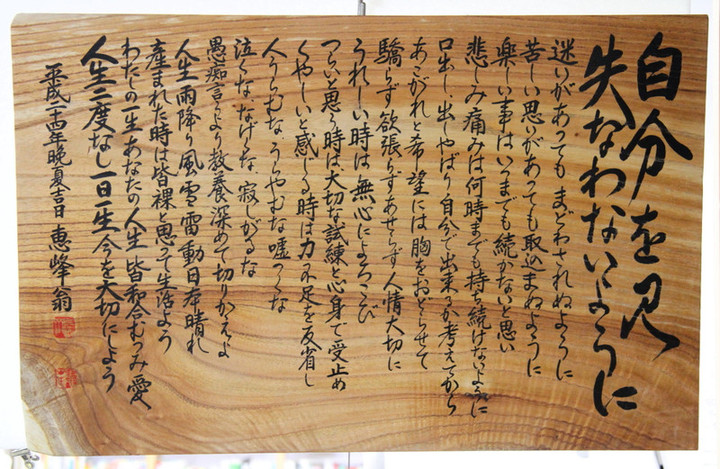 自分を見
失なわないように
迷いがあっても まどわされぬように
苦しい思いがあっても取込まぬように
楽しい事はいつまでも続かないと思い
悲しみ痛みは何時までも持ち続けないように
口出し出しやばり自分で出来るか考えてから
あこがれと希望には胸をおどらせて
驕らず欲張らずあせらず人情大切に
うれしい時は無心によろこび
つらいと思う時は大切な試練と心身で受止め
くやしいと感じる時は力不足を反省し
人うらむな うらやむな嘘つくな
泣くな なげくな 寂しがるな
愚痴言うより教養深めて切りかえよ
人生雨降り風雪雷動日本晴れ
産まれた時は皆裸と思って生活よう
わたしの一生あなたの人生 皆和合むつみ愛
人生二度なし一日一生今を大切にしよう
平成二十四年晩夏吉日 恵峰翁